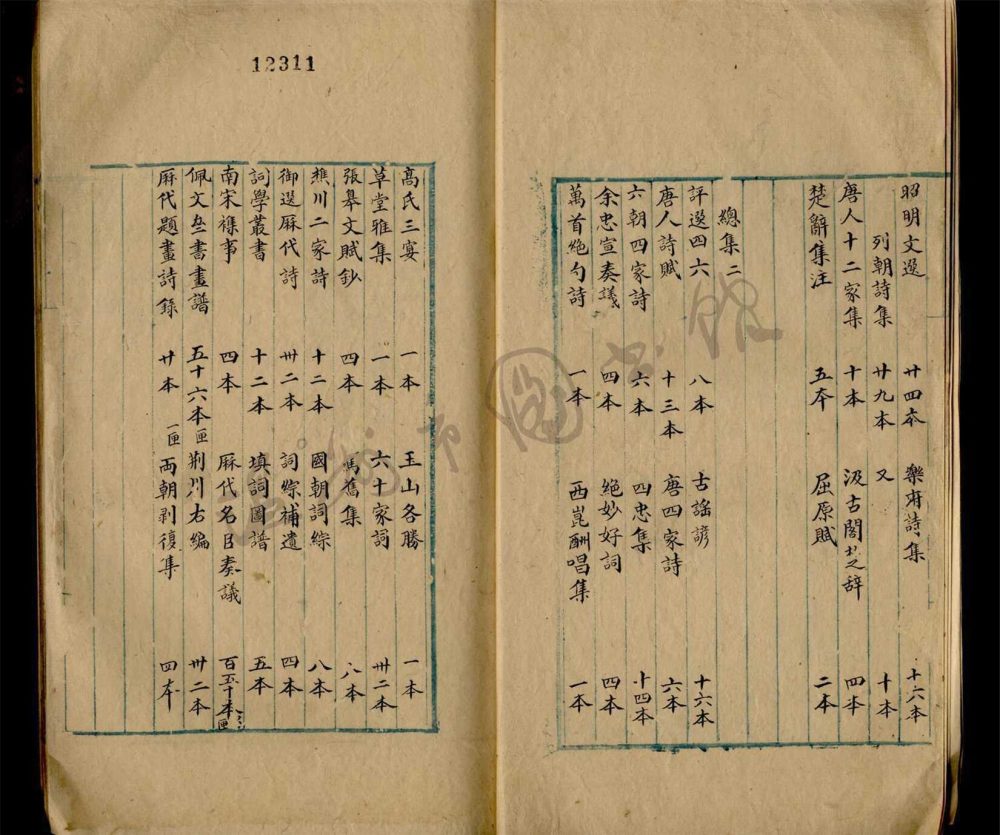 昭明文選 廿四本 樂府詩集 十六本
列朝詩集 廿九本 又 十本
唐人十二家集 十本 汲古閣楚辞 四本
楚辭集注 五本 屈原賦 二本
總集二
評選四六 八本 古謠諺 十六本
唐人詩賦 十三本 唐四家詩 六本
六朝四家詩 六本 四忠集 十四本
余忠宣奏議 四本 絕妙好詞 四本
萬首絶句詩 一本 西崑酬唱集 一本
12311
高氏三宴 一本 玉山各勝 一本
草堂雅集 一本 六十家詞 卅二本
張皋文賦鈔 四本 舊集 八本
樵川二家詩 十二本 國朝詞綜 八本
御選厤代詩 卅二本 詞綜補遺 四本
詞學叢書 十二本 填詞圖譜 五本
南宋襍事 四本 厤代名臣奏議 百五十本 匣
佩文叁書畫譜 五十六本 匣 荆川右編 卅二本
厤代題畫詩錄 廿本 一匣 両朝剥復集 四本
圖書館